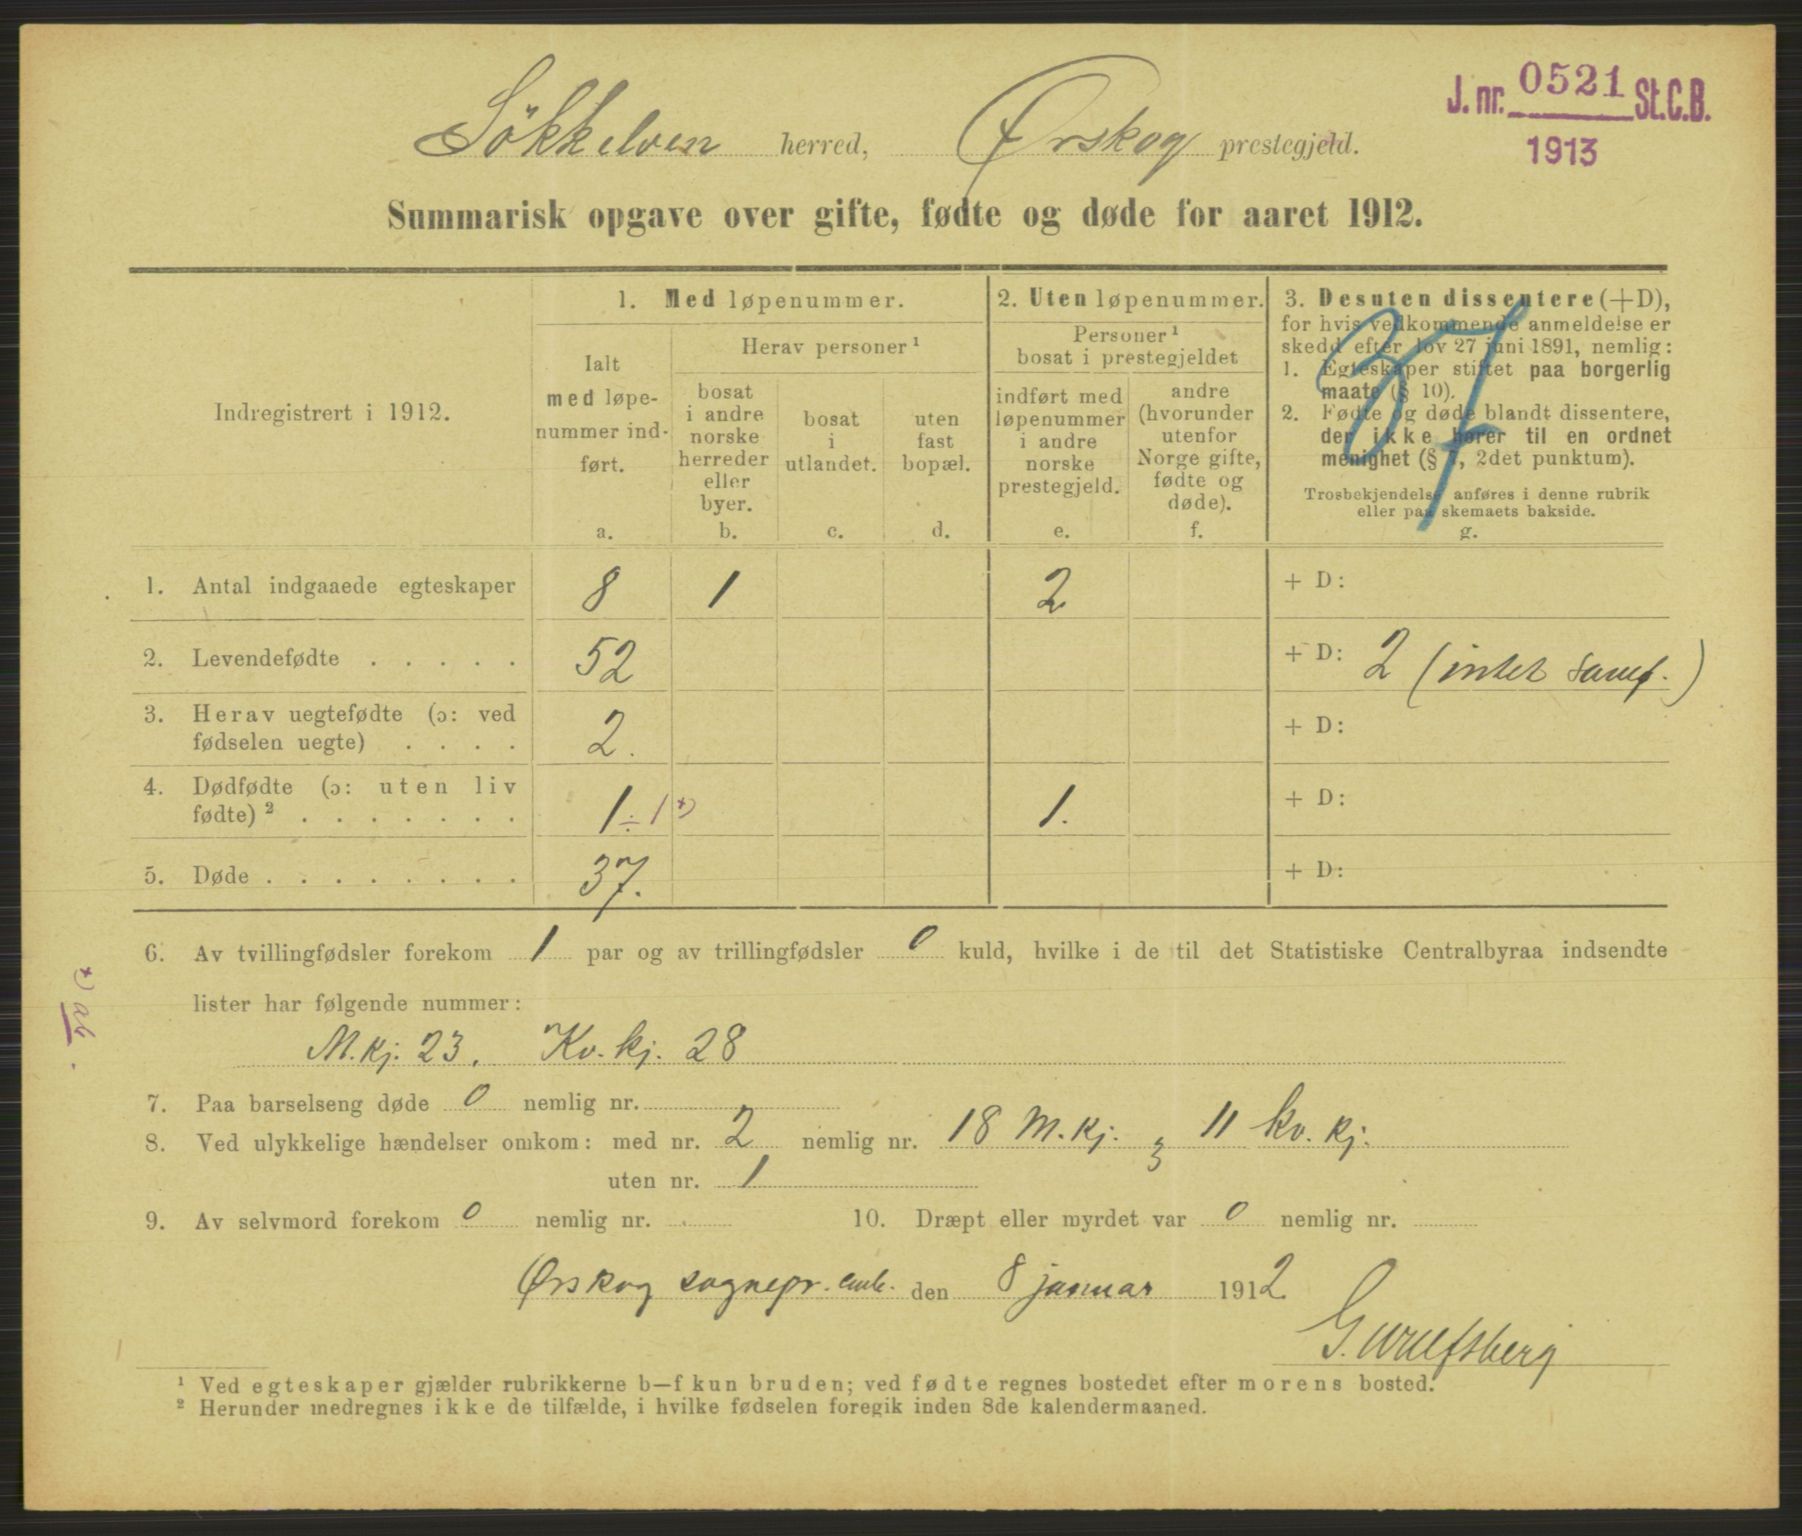 J. nr. 0521 St.C.B.
1913
Søkkelven herred, Ørskog prestegjeld.
Summarisk opgave over gifte, fødte og døde for aaret 1912.
Indregistrert i 1912.
1. Med løpenummer.
Ialt
med løpe-
nummer ind-
ført.
a.
Herav personer¹
bosat
i andre
norske
herreder
eller
byer.
b.
bosat
i
utlandet.
c.
uten
fast
bopæl.
d.
2. Uten løpenummer.
Personer¹
bosat i prestegjeldet
indført med
løpenummer
i andre
norske
prestegjeld.
e.
andre
(hvorunder
utenfor
Norge gifte,
fødte og
døde).
f.
3. Desuten dissentere (+D),
for hvis vedkommende anmeldelse er
skedd efter lov 27 juni 1891, nemlig:
1. Egteskaper stiftet paa borgerlig
maate (§ 10).
2. Fødte og døde blandt dissentere,
der ikke hører til en ordnet
menighet (§ 7, 2det punktum).
Trosbekjendelse anføres i denne rubrik
eller paa skemaets bakside.
g.
37
1. Antal indgaaede egteskaper 8 1 2 + D:
2. Levendefødte . . . . . 52 + D: 2 (intet samf.)
3. Herav uegtefødte (ɔ: ved
fødselen uegte) . . . . 2. + D:
4. Dødfødte (ɔ: uten liv
fødte)² . . . . . . . 1 ÷ 1 x) 1. + D:
5. Døde . . . . . . . . 37. + D:
6. Av tvillingfødsler forekom 1 par og av trillingfødsler 0 kuld, hvilke i de til det Statistiske Centralbyraa indsendte
lister har følgende nummer:
M.kj. 23. Kv. kj. 28
x) ab.
7. Paa barselseng døde 0 nemlig nr.
8. Ved ulykkelige hændelser omkom: med nr. 2 nemlig nr. 18 M.kj. ; 11 kv. kj.
uten nr. 1
9. Av selvmord forekom 0 nemlig nr. 10. Dræpt eller myrdet var 0 nemlig nr.
Ørskog sognepr. emb. den 8 januar 1912
G. Wulfsberg
¹ Ved egteskaper gjælder rubrikkerne b—f kun bruden; ved fødte regnes bostedet efter morens bosted.
² Herunder medregnes ikke de tilfælde, i hvilke fødselen foregik inden 8de kalendermaaned.